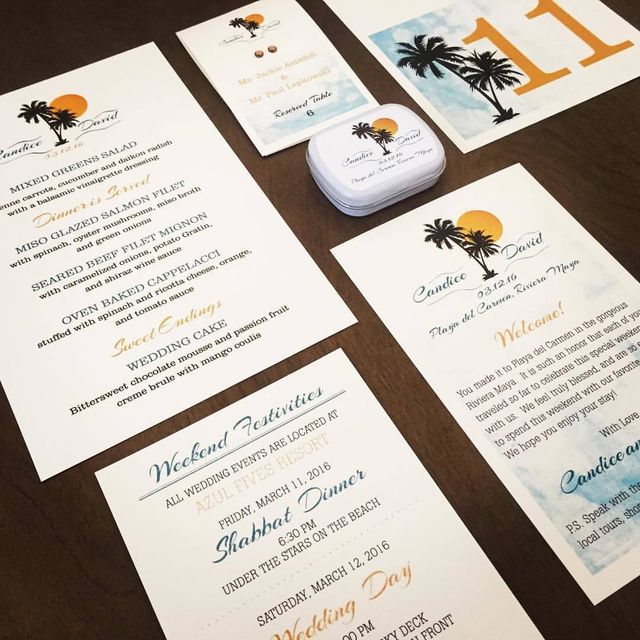 Candice David
3.12.16
MIXED GREENS SALAD
enne carrots, cucumber and daikon radish
with a balsamic vinaigrette dressing
Dinner is Served
MISO GLAZED SALMON FILET
with spinach, oyster mushrooms, miso broth
and green onions
SEARED BEEF FILET MIGNON
with caramelized onions, potato Gratin,
and shiraz wine sauce
OVEN BAKED CAPPELACCI
stuffed with spinach and ricotta cheese, orange,
and tomato sauce
Sweet Endings
WEDDING CAKE
Bittersweet chocolate mousse and passion fruit
creme brule with mango coulis
Candice David
Ms. Jackie
&
Mr. Paul
Reserved Table
6
11
Candice David
03.12.16
Playa del Carmen, Riviera Maya
Candice David
03.12.16
Playa del Carmen, Riviera Maya
Welcome!
You made it to Playa del Carmen in the gorgeous
Riviera Maya. It is such an honor that each of you
traveled so far to celebrate this special wee
with us. We feel truly blessed, and are so
to spend this weekend with our favorite
We hope you enjoy your stay!
With Love
Candice an
P.S. Speak with the
local tours, shor
Weekend Festivities
ALL WEDDING EVENTS ARE LOCATED AT
AZUL FIVES RESORT
FRIDAY, MARCH 11, 2016
Shabbat Dinner
6:30 PM
UNDER THE STARS ON THE BEACH
SATURDAY, MARCH 12, 2016
Wedding Day
KY DECK
FRONT